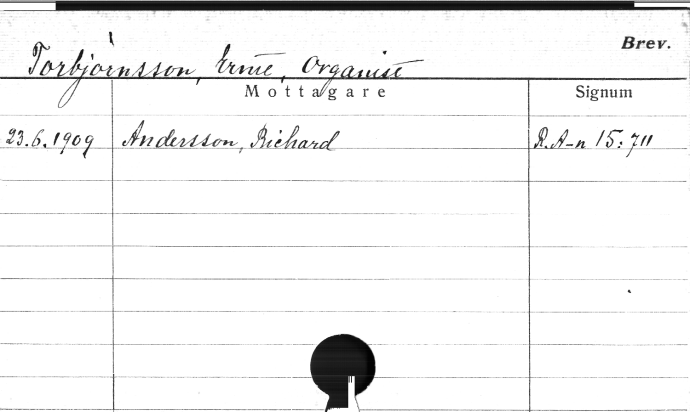 Brev.
Torbjörnsson, Ernst, Organist
Mottagare Signum
23.6.1909 Andersson, Richard R.A-n 15: 711